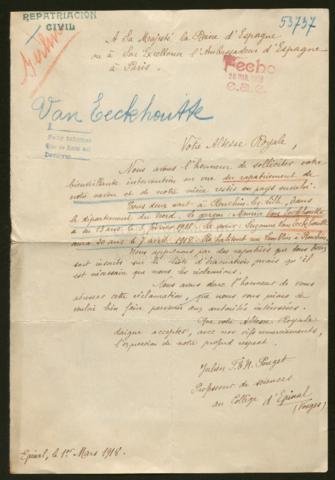 REPATRIACION
CIVIL
53737
A Sa Majesté la Reine d'Espagne
ou à Son Excellence l'Ambassadeur d'Espagne
à Paris.
Fecho
28 MAR 1918
C.a.e.
Van Eeckhoutte
Votre Altesse Royale,
Nous avons l'honneur de solliciter votre
bienveillante intervention en vue du rapatriement de
notre neveu et de notre nièce restés en pays envahi.
Tous deux sont à Haubourdin, dans
le département du Nord. Le garçon: Van Eeckhoutte
a eu 13 ans le 5 février 1918. La sœur: Suzanne Van Eeckhoutte
aura 30 ans le 7 avril 1918. Ils habitent
Nous apprenons par des rapatriés que tous deux
sont inscrits sur la liste d'évacuation mais qu'il
est nécessaire que nous les réclamions.
Nous avons donc l'honneur de vous
adresser cette réclamation, que nous vous prions de
vouloir bien faire parvenir aux autorités intéressées.
Que votre Altesse Royale
daigne accepter, avec nos vifs remerciements,
l'expression de notre profond respect.
Julien Pouget
Professeur de sciences
au Collège d'Epinal
(Vosges)
Epinal, le 1er Mars 1918.